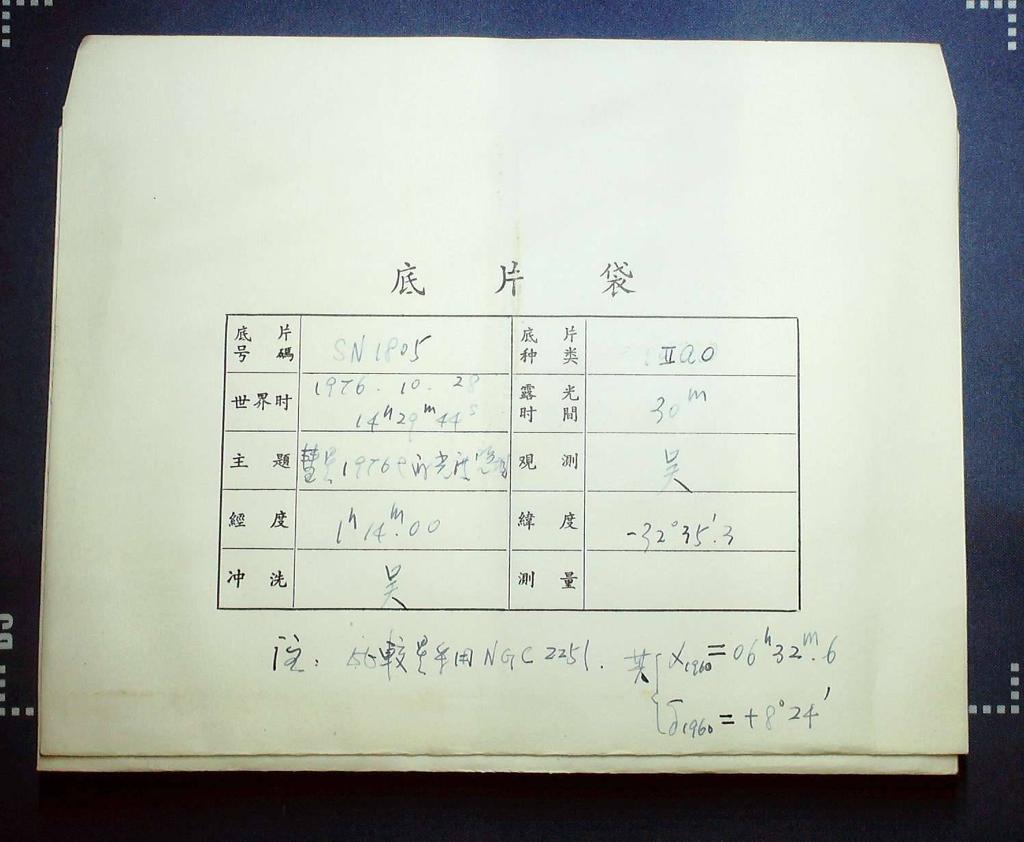 底 片 袋
底片号碼 SN1805 底片种类 IIaO
世界时 1976.10.28 14h29m44s 露光时間 30m
主題 彗星1976 观測 吴
經度 1h14m.00 緯度 -32°35'.3
冲洗 吴 測量
注: 比較星采用NGC 2251. 其 α1960=06h32m.6
δ1960=+8°24'